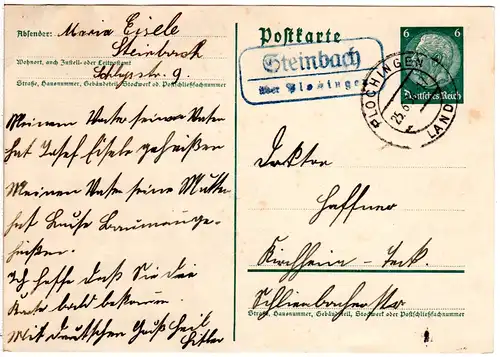 Absender: Maria Eisele
Steinbach
Wohnort, auch Zustell- oder Leitpostamt
Schloßstr. 9.
Straße, Hausnummer, Gebäudeteil, Stockwerk od. Postschließfachnummer
Meinem Vater seiner Vater
hat Josef Eisele geheißen
Meinem Vater seine Mutter
hat Luise Baumann ge-
heißen.
Ich hoffe daß Sie die
Karte bald bekommen.
Mit deutschen Gruß Heil
Hitler
Postkarte
Steinbach
über Plochingen
PLOCHINGEN
LAND
6 6
Deutsches Reich
Doktor
Haffner
Kirchheim-Teck.
Schlierbacherstr
Straße, Hausnummer, Gebäudeteil, Stockwerk oder Postschließfachnummer